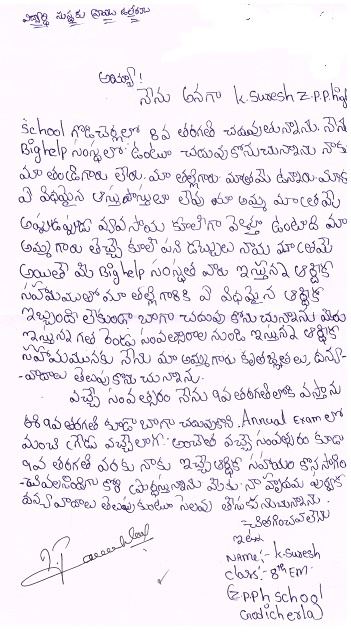 విద్యార్థి సంస్థకు వ్రాయు ఉత్తరం
అయ్యా!
నేను అనగా K.Suresh Z.P.P.high
School గొడిచెర్లలో 8వ తరగతి చదువుతున్నాను. నేను
Bighelp సంస్థలో ఉంటూ చదువుకొనుచున్నాను నాకు
మా తండ్రిగారు లేరు. మా తల్లిగారు మాత్రమే ఉన్నారు. మాకు
ఏ విధమైన ఆస్తిపాస్తులు లేవు మా అమ్మ మాత్రమే
అప్పుడప్పుడు వ్యవసాయ కూలీగా వెళ్తూ ఉంటుంది మా
అమ్మ గారు తెచ్చే కూలి పని డబ్బులు మాత్రమే
అయితే మీ Bighelp సంస్థత వారు ఇస్తున్న ఆర్థిక
సహాయముతో మా తల్లి గారికి ఏ విధమైన ఆర్థిక
ఇబ్బంది లేకుండా బాగా చదువు కొనుచున్నాను మీరు
ఇస్తున్న గత రెండు సంవత్సరాల నుండి ఇస్తున్న ఆర్థిక
సహాయమునకు నేను మా అమ్మగారు కృతజ్ఞతలు, ధన్య-
-వాదాలు తెలుపుకొను చున్నాను.
వచ్చే సంవత్సరం నేను 9వ తరగతిలోకి వస్తాను
ఈ 9వ తరగతి కూడా బాగా చదువుకొని. Annual Exam లో
మంచి గ్రేడు వచ్చేలాగ. అంతేకాక వచ్చే సంవత్సరం కూడా
9వ తరగతి వరకు నాకు ఇచ్చే ఆర్థిక సహాయం కొనసాగిం-
-చవలసిందిగా కోరి ప్రార్థిస్తున్నాను మీకు నా హృదయ పూర్వక
ధన్యవాదాలు తెలుపుకుంటూ సెలవు తీసుకుంటున్నాను.
చిత్తగించవలెను
ఇట్లు
NAME:- K.Suresh
Class:- 8th EM.
Z.P.P.H School
Godicherla